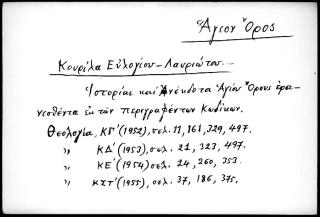 Ἅγιον Ὄρος
Κουρίλα Εὐλογίου - Λαυριώτου. -
Ἱστορίαι καὶ Ἀνέκδοτα Ἁγίου Ὄρους ἐρα-
νισθέντα ἐκ τῶν περιγραφέντων Κωδίκων.
Θεολογία, ΚΓ΄ (1952), σελ. 11, 161, 329, 497.
" ΚΔ΄ (1953) σελ. 21, 323, 497.
" ΚΕ΄ (1954) σελ. 24, 260, 353.
" ΚΣΤ΄ (1955), σελ. 37, 186, 375.